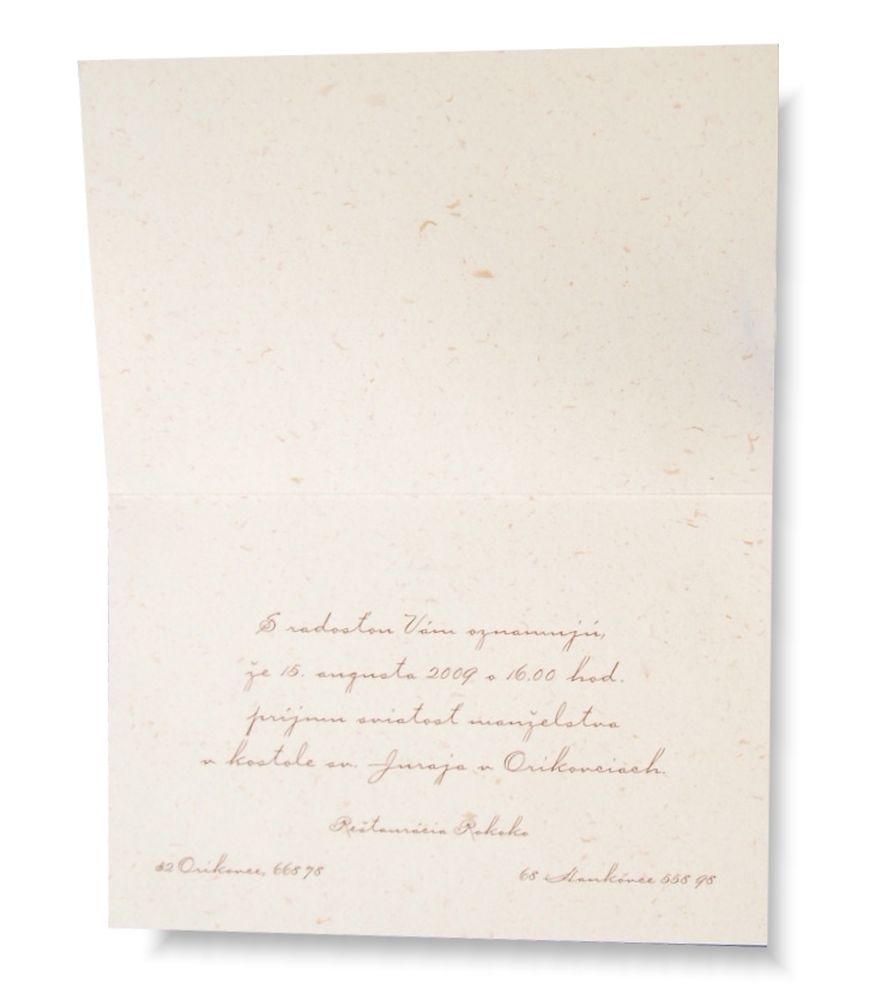 S radosťou Vám oznamujú,
že 15. augusta 2009 o 16.00 hod.
príjmu sviatosť manželstva
v kostole sv. Juraja v Orikovciach.
Reštaurácia Rokoko
52 Orikovce, 668 78
68 Hankovce 558 98